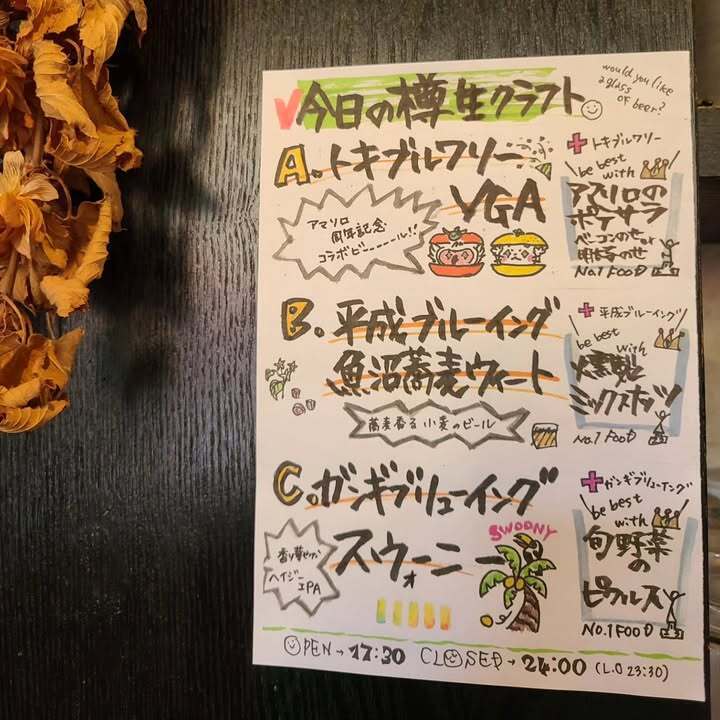 今日の樽生クラフト
would you like
a glass
of beer?
A. トキブルワリー
VGA
アマソロ
周年記念
コラボビーーーール!!
トキブルワリー
be best
with
アマソロの
ポテサラ
ベーコンのせ or
明太子のせ
No.1 FOOD
B. 平成ブルーイング
魚沼蕎麦ウィート
蕎麦香る小麦のビール
平成ブルーイング
be best
with
燻製
ミックスナッツ
No.1 FOOD
C. ガンギブリューイング
スウォーニー
SWOONY
香り華やか
ヘイジー
IPA
ガンギブリューイング
be best
with
旬野菜
の
ピクルス
No.1 FOOD
OPEN→17:30 CLOSED→24:00 (L.O 23:30)